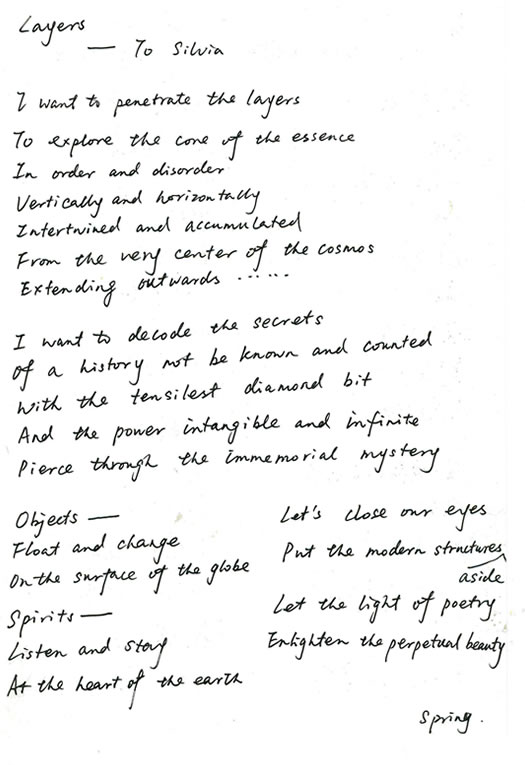 Layers
— To Silvia
I want to penetrate the layers
To explore the cone of the essence
In order and disorder
Vertically and horizontally
Intertwined and accumulated
From the very center of the cosmos
Extending outwards ······
I want to decode the secrets
of a history not be known and counted
With the tensilest diamond bit
And the power intangible and infinite
Pierce through the immemorial mystery
Objects —
Float and change
On the surface of the globe
Spirits —
Listen and stay
At the heart of the earth
Let's close our eyes
Put the modern structures
aside
Let the light of poetry
Enlighten the perpetual beauty
Spring.